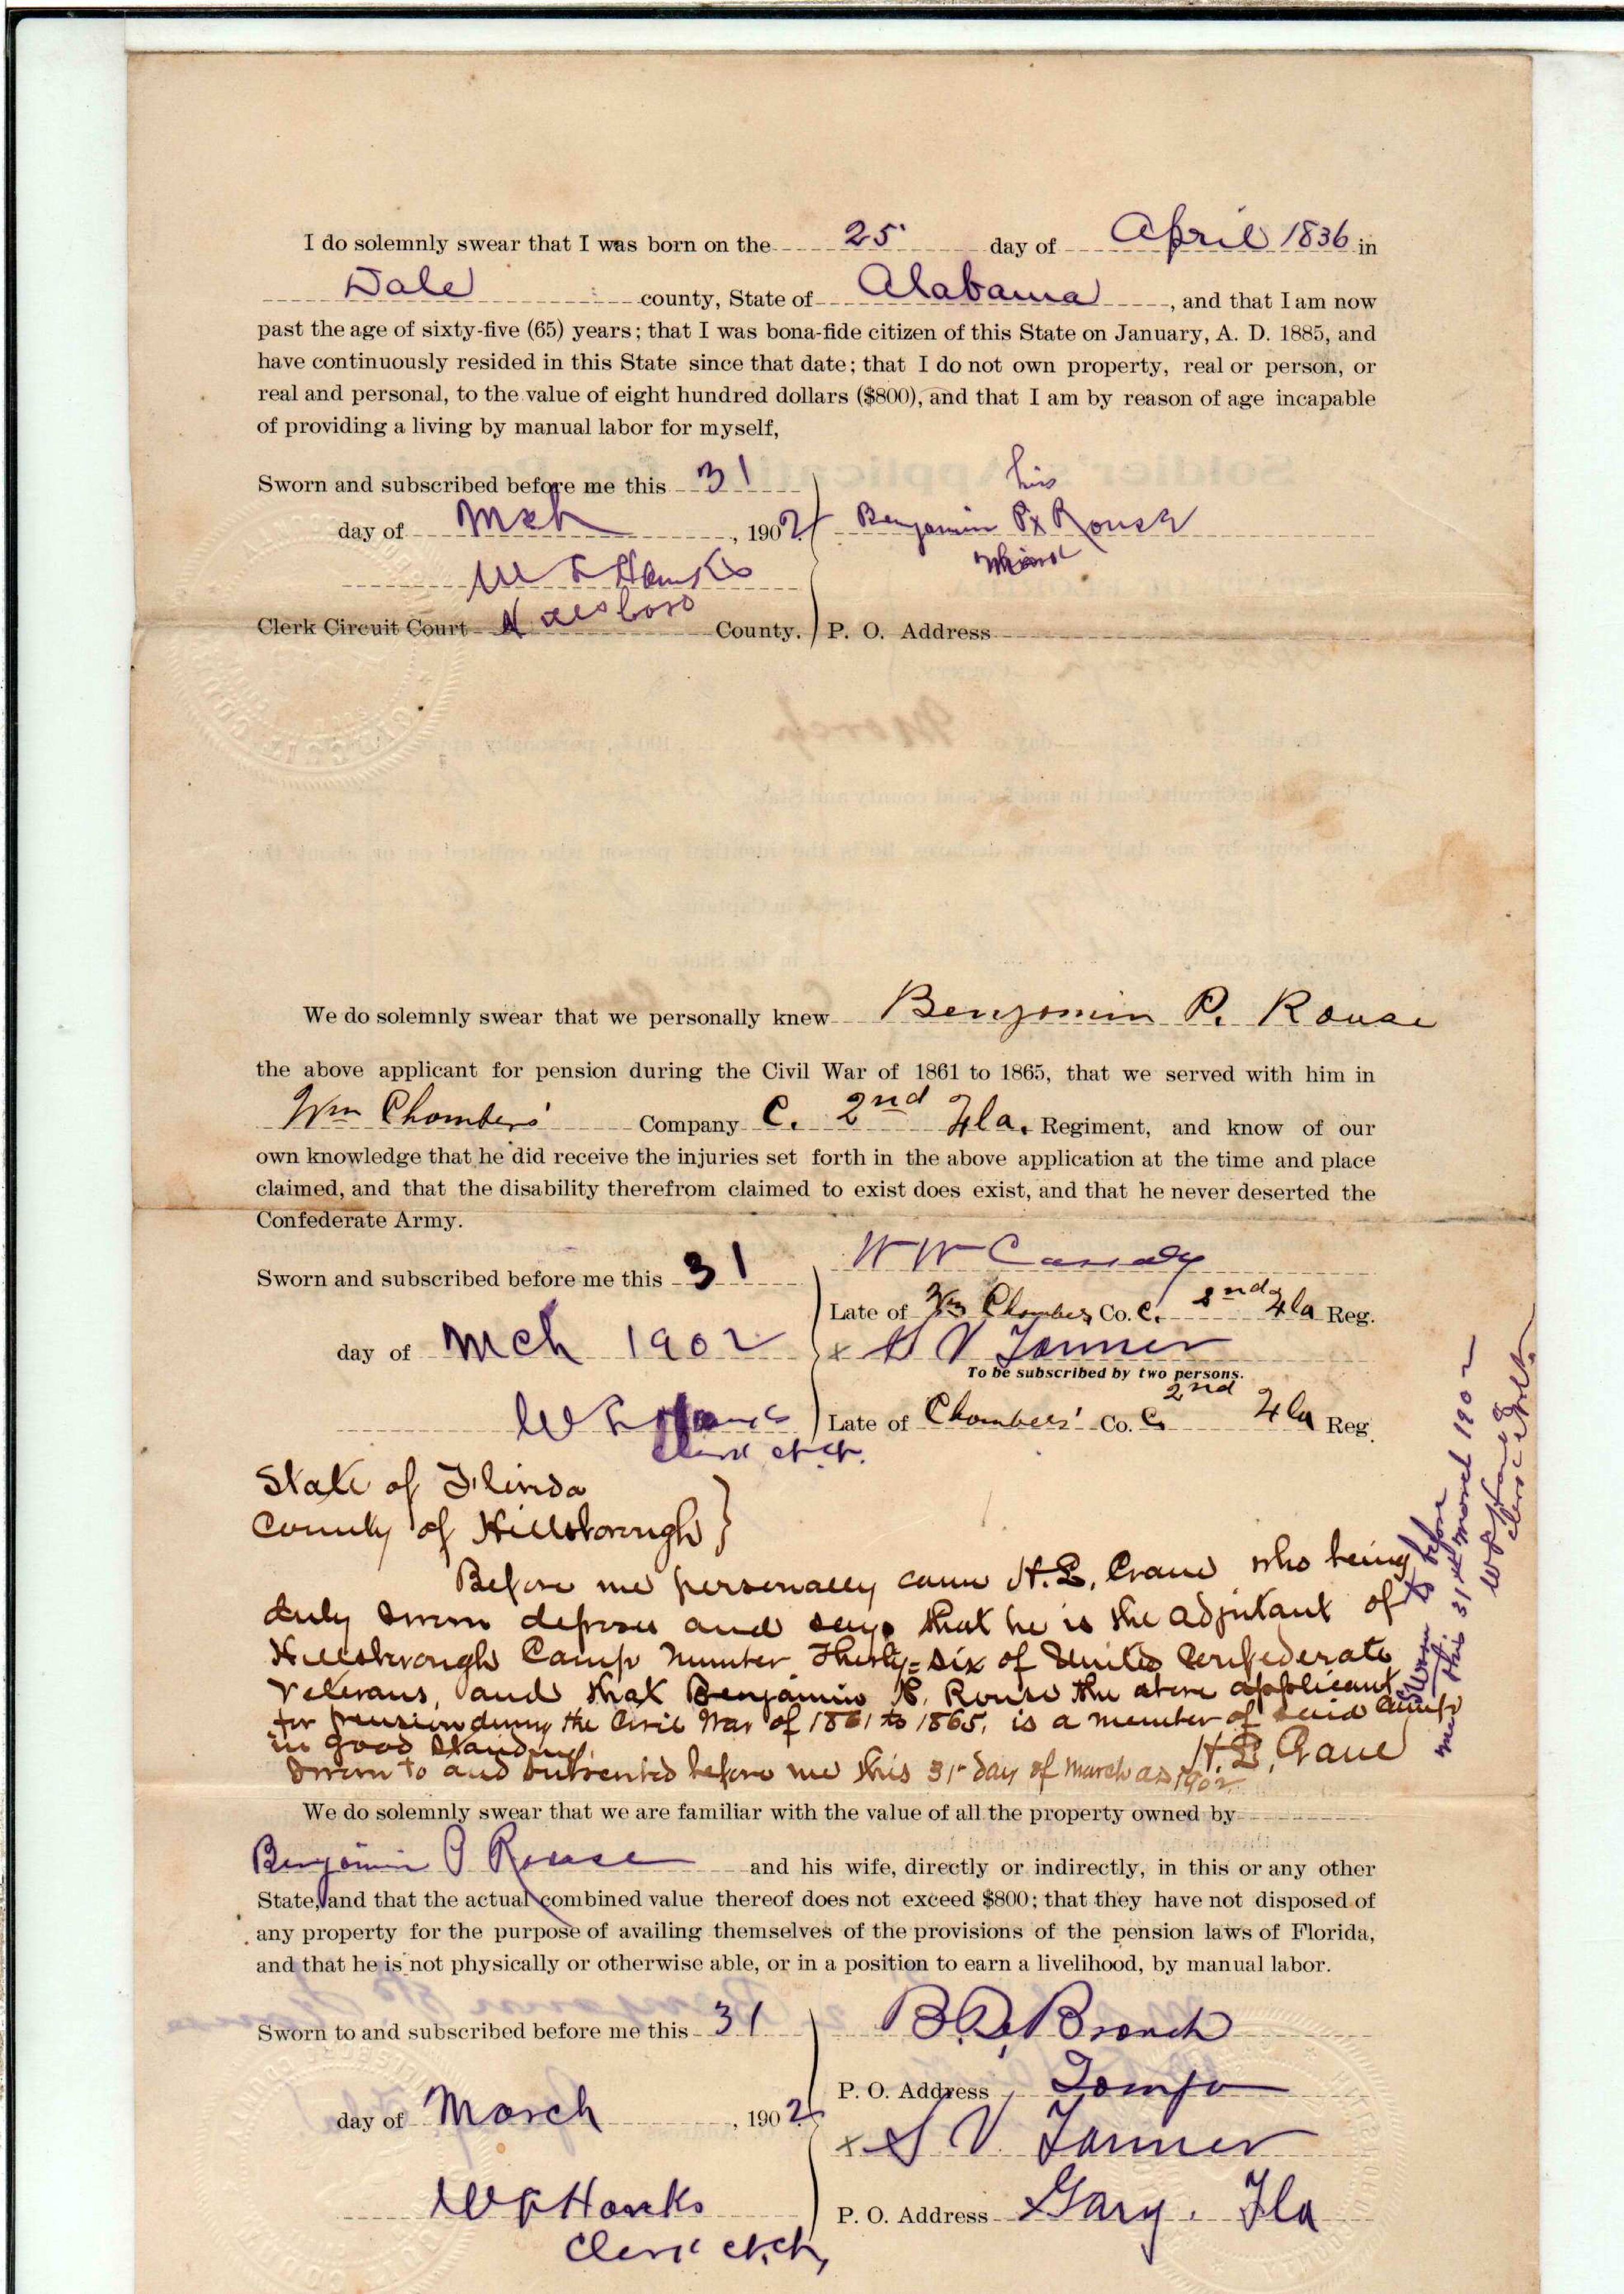 I do solemnly swear that I was born on the 25 day of April 1836 in
Dale county, State of Alabama, and that I am now
past the age of sixty-five (65) years; that I was bona-fide citizen of this State on January, A. D. 1885, and
have continuously resided in this State since that date; that I do not own property, real or person, or
real and personal, to the value of eight hundred dollars ($800), and that I am by reason of age incapable
of providing a living by manual labor for myself,
his
Sworn and subscribed before me this 31
day of Mch, 1902 Benjamin P x Rouse
W F Hanks
Clerk Circuit Court Hillsboro County. P. O. Address
We do solemnly swear that we personally knew Benjamin P. Rouse
the above applicant for pension during the Civil War of 1861 to 1865, that we served with him in
Wm Chambers' Company C. 2nd Fla. Regiment, and know of our
own knowledge that he did receive the injuries set forth in the above application at the time and place
claimed, and that the disability therefrom claimed to exist does exist, and that he never deserted the
Confederate Army.
W W
Sworn and subscribed before me this 31
Late of Wm Chambers Co. C. 2nd Fla Reg.
day of Mch 1902 x S V Tanner
To be subscribed by two persons.
W F Hanks Late of Chambers' Co. C 2nd Fla Reg.
Clerk ct.ct.
State of Florida
County of Hillsborough }
Before me personally came H. L. Crane who being
duly sworn deposes and says that he is the adjutant of
Hillsborough Camp Number Thirty-six of United Confederate
Veterans, and that Benjamin P. Rouse the above applicant
for pension during the Civil War of 1861 to 1865, is a member of said Camp
in good standing.
H. L. Crane
Sworn to and subscribed before me this 31st day of March AD 1902
Sworn to before
me this 31st March 1902
We do solemnly swear that we are familiar with the value of all the property owned by
Benjamin P Rouse and his wife, directly or indirectly, in this or any other
State, and that the actual combined value thereof does not exceed $800; that they have not disposed of
any property for the purpose of availing themselves of the provisions of the pension laws of Florida,
and that he is not physically or otherwise able, or in a position to earn a livelihood, by manual labor.
Sworn to and subscribed before me this 31 Branch
P. O. Address Tampa
day of March, 1902
x S V. Tanner
W F Hanks P. O. Address Gary. Fla
Clerk ct.ct.